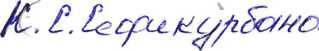 К. С. Сефикурбано